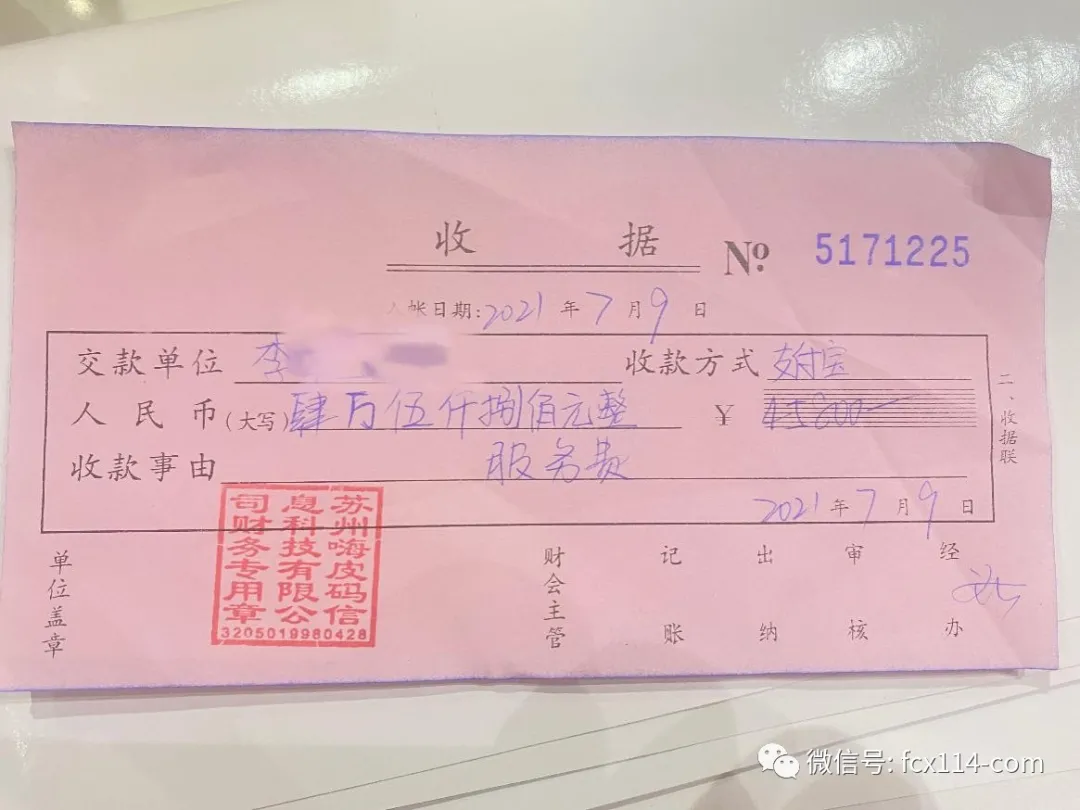 收 据 № 5171225
帐日期:2021年7月9日
交款单位 李 收款方式 支付宝
人民币(大写)肆万伍仟捌佰元整 ¥ 45800
收款事由 服务费
2021年7月9日
二、收据联
单位盖章
苏州嗨皮码信息科技有限公司财务专用章
3205019980428
财会主管 记账 出纳 审核 经办
微信号: fcx114-com